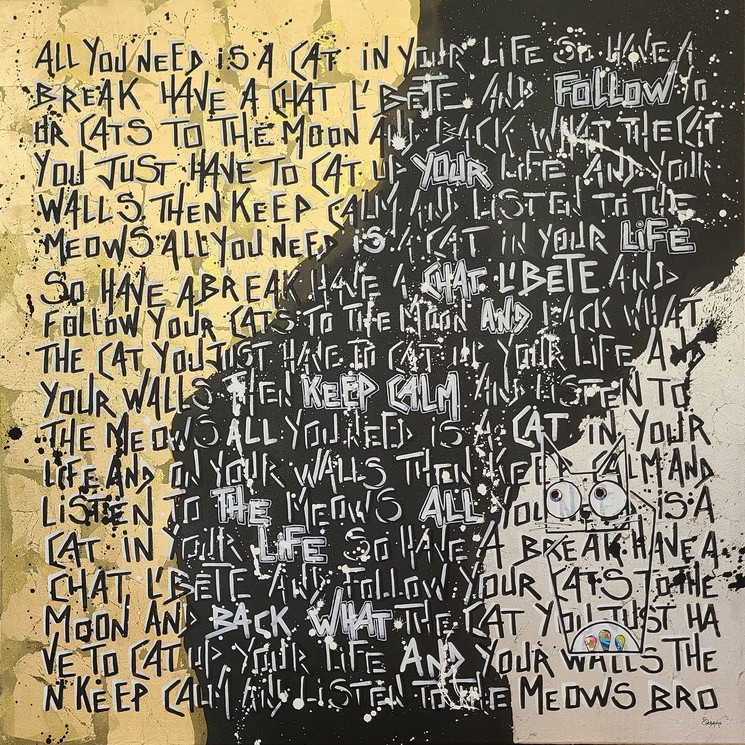 ALL YOU NEED IS A CAT IN YOUR LIFE SO HAVE A
BREAK HAVE A CHAT L'BÊTE AND FOLLOW YO
UR CATS TO THE MOON AND BACK WHAT THE CAT
YOU JUST HAVE TO CAT UP YOUR LIFE AND YOUR
WALLS THEN KEEP CALM AND LISTEN TO THE
MEOWS ALL YOU NEED IS A CAT IN YOUR LIFE
SO HAVE A BREAK HAVE A CHAT L'BÊTE AND
FOLLOW YOUR CATS TO THE MOON AND BACK WHAT
THE CAT YOU JUST HAVE TO CAT UP YOUR LIFE AND
YOUR WALLS THEN KEEP CALM AND LISTEN TO
THE MEOWS ALL YOU NEED IS A CAT IN YOUR
LIFE AND ON YOUR WALLS THEN KEEP CALM AND
LISTEN TO THE MEOWS ALL YOU NEED IS A
CAT IN YOUR LIFE SO HAVE A BREAK HAVE A
CHAT L'BÊTE AND FOLLOW YOUR CATS TO THE
MOON AND BACK WHAT THE CAT YOU JUST HA
VE TO CAT UP YOUR LIFE AND YOUR WALLS THE
N KEEP CALM AND LISTEN TO THE MEOWS BRO